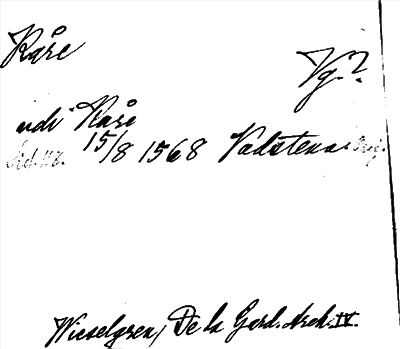 Kåre
Vg.?
udi Kåre
15/8 1568 Vadstena
Wieselgren, De la Gard. Arch. IV.